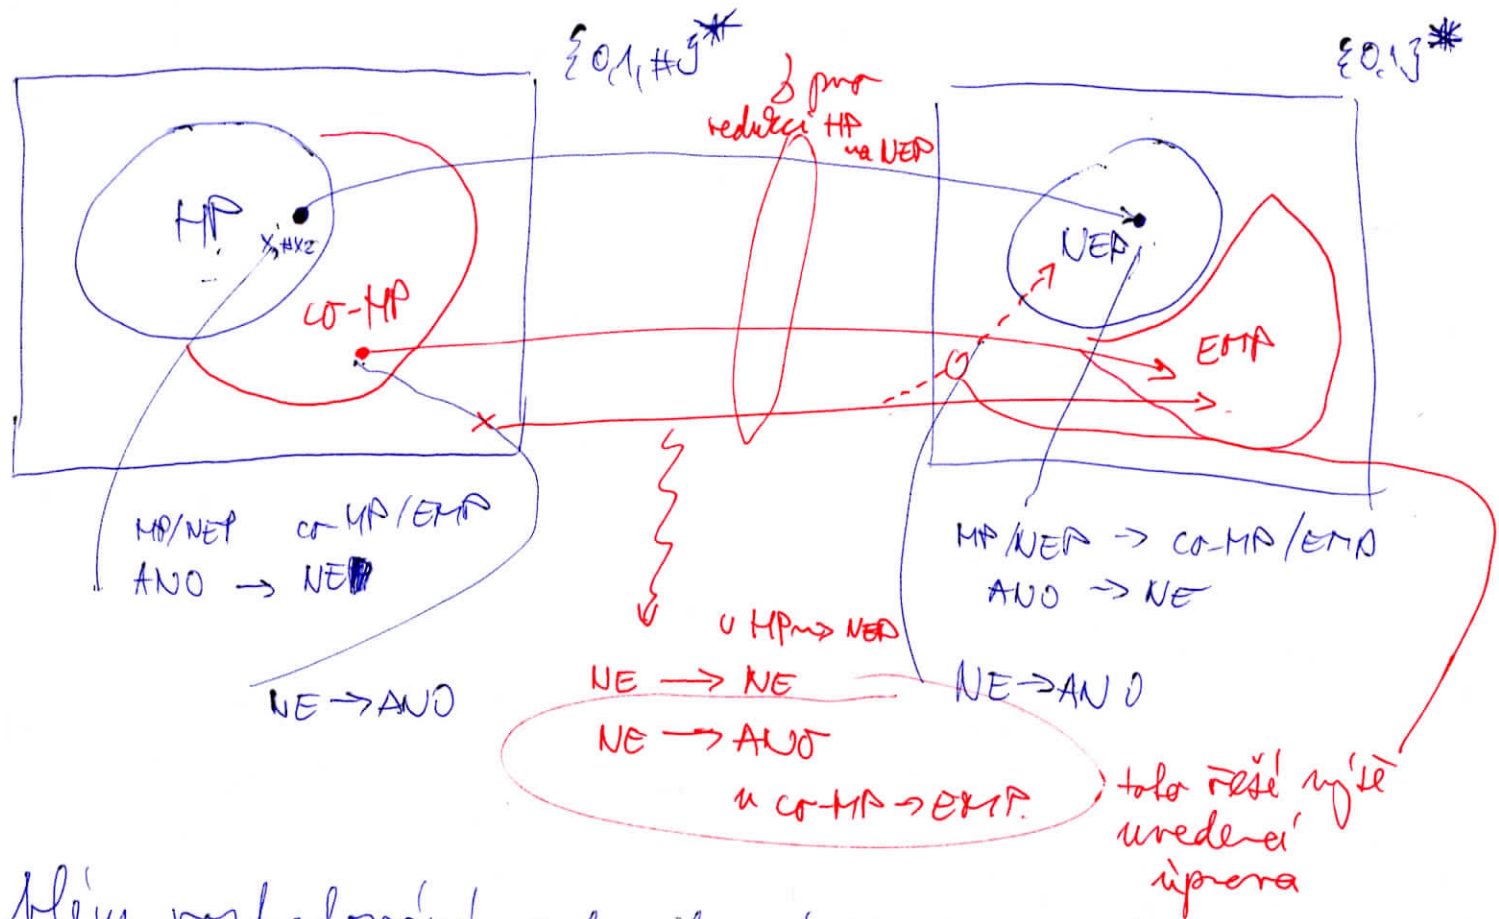 {0,1,#}*
{0,1}*
redukci HP
na NEP
HP
x₁#x₂
co-HP
NEP
EMP
HP/NEP co-HP/EMP
ANO → NE
NE → ANO
u HP → NEP
NE → NE
NE → ANO
u co-HP → EMP.
HP/NEP → co-HP/EMP
ANO → NE
NE → ANO
toto řeší výše
uvedená
úprava